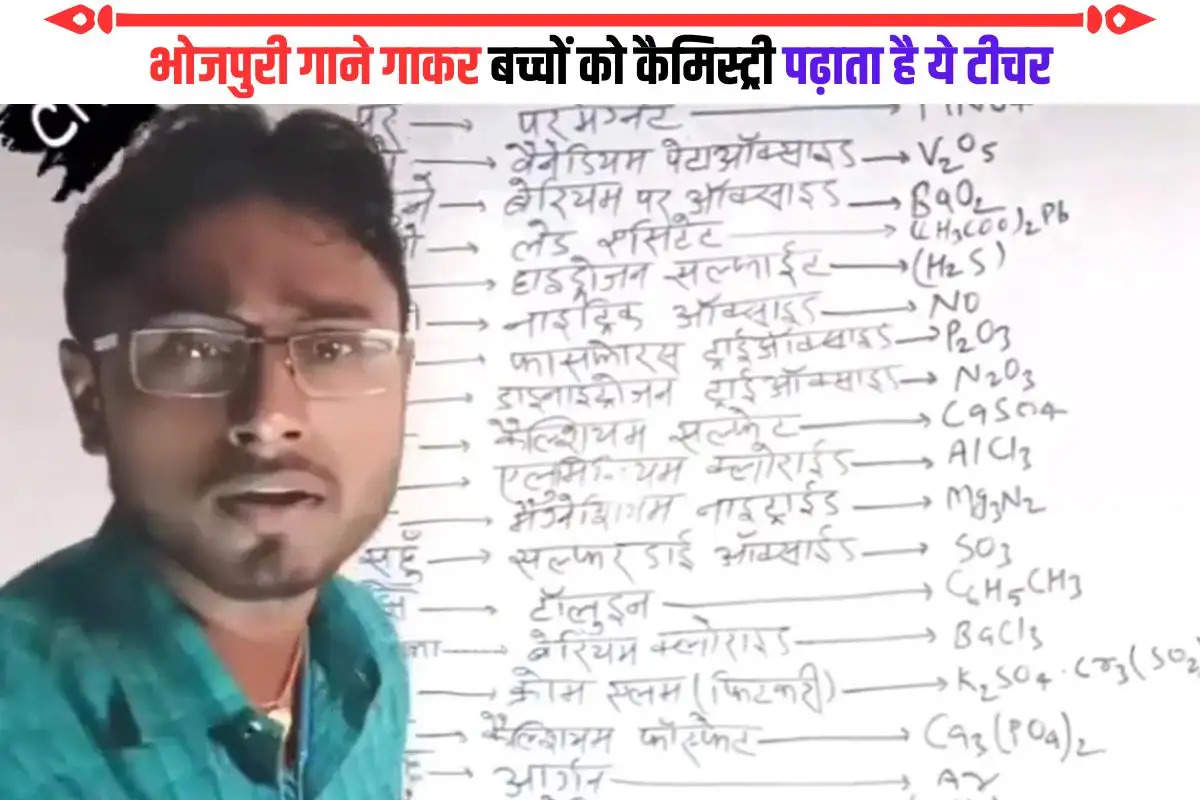 भोजपुरी गाने गाकर बच्चों को कैमिस्ट्री पढ़ाता है ये टीचर
पर → परमैग्नेट →
→ वैनेडियम पेटाऑक्साइड → V₂O₅
→ बेरियम पर ऑक्साइड → BaO₂
→ लेड एसिटेट → (CH₃COO)₂Pb
→ हाइड्रोजन सल्फाईट → (H₂S)
→ नाइट्रिक ऑक्साइड → NO
→ फासफोरस ट्राईऑक्साइड → P₂O₃
→ डाइनाइट्रोजन ट्राईऑक्साइड → N₂O₃
→ कैल्शियम सल्फेट → CaSO₄
→ एलुमिनियम क्लोराईड → AlCl₃
→ मैग्नेशियम नाइट्राईड → Mg₃N₂
सहुँ → सल्फर डाई ऑक्साईड → SO₃
→ टॉलुइन → C₆H₅CH₃
→ बेरियम क्लोराइड → BaCl₃
→ क्रोम एलम (फिटकरी) → K₂SO₄·Cr₃(SO₂
→ कैल्शियम फॉस्फेट → Ca₃(PO₄)₂
→ आर्गन → Ar